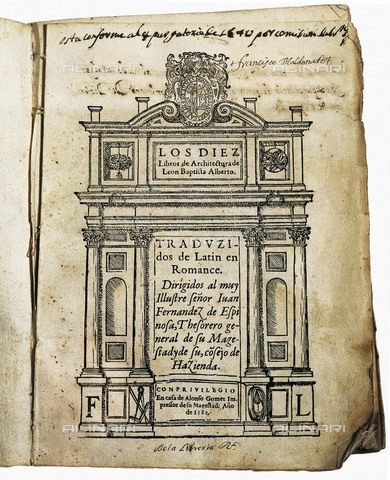 esta conforme al expurgatorio de 1640 por comision del sto
francisco Maldonado
LOS DIEZ
Libros de Architectura de
Leon Baptista Alberto.
TRADVZI-
dos de Latin en
Romance.
Dirigidos al muy
Illustre señor Iuan
Fernandez de Espi
nosa, Thesorero ge-
neral de su Mage-
stad y de su, cõsejo de
Hazienda.
CON PRIVILEGIO
En casa de Alonso Gomez Im-
pressor de su Magestad; Año
de 1582.
F L
De la Libreria Rl.
ALINARI
ALINARI